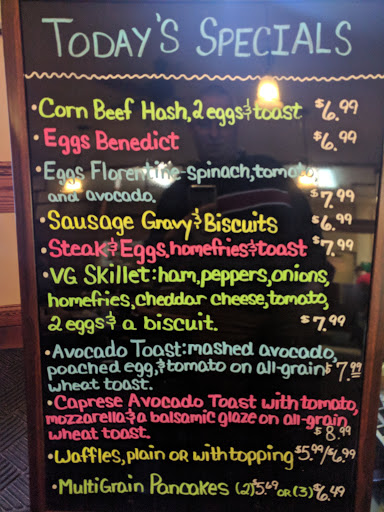 TODAY'S SPECIALS
•Corn Beef Hash, 2 eggs & toast $6.99
•Eggs Benedict $6.99
•Eggs Florentine-spinach, tomato,
and avocado. $7.99
•Sausage Gravy & Biscuits $6.99
•Steak & Eggs, homefries & toast $7.99
•VG Skillet: ham, peppers, onions,
homefries, cheddar cheese, tomato,
2 eggs & a biscuit. $7.99
•Avocado Toast: mashed avocado,
poached egg, & tomato on all-grain $7.99
wheat toast.
•Caprese Avocado Toast with tomato,
mozzarella & a balsamic glaze on all-grain
wheat toast. $8.99
•Waffles, plain or with topping $5.99/$6.99
•MultiGrain Pancakes (2) $5.69 or (3) $6.49